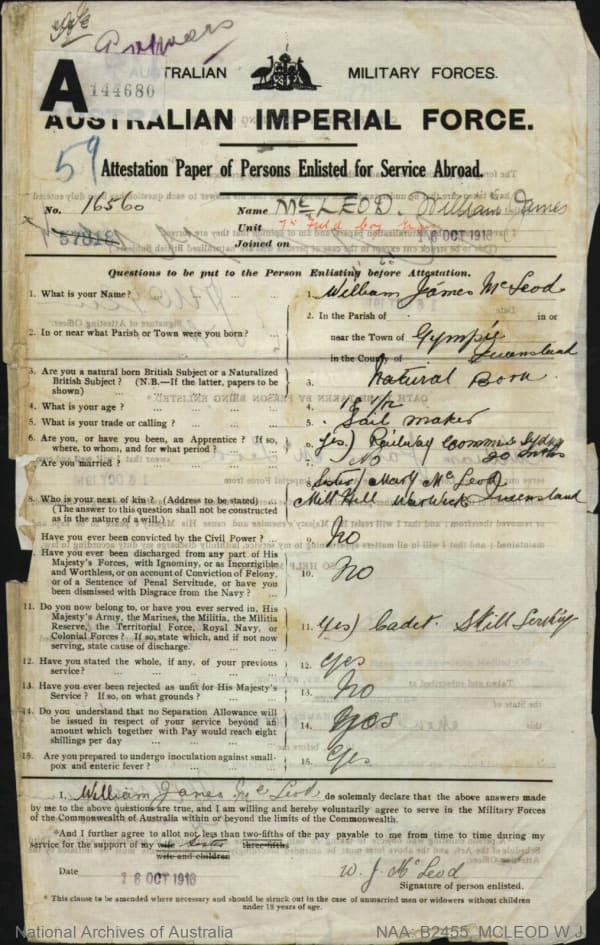 A
144680
AUSTRALIAN MILITARY FORCES.
AUSTRALIAN IMPERIAL FORCE.
59
Attestation Paper of Persons Enlisted for Service Abroad.
No. 16560
57818
Name McLEOD. William James
Unit 7th Field Coy
Joined on 18 OCT 1916
Questions to be put to the Person Enlisting before Attestation.
1. What is your Name? ... ... ... 1. William James McLeod
2. In or near what Parish or Town were you born? ... 2. In the Parish of in or
near the Town of Gympie
in the County of Queensland
3. Are you a natural born British Subject or a Naturalized
British Subject? (N.B.—If the latter, papers to be
shown) ... ... ... 3. Natural Born
4. What is your age? ... ... ... 4. 18 1/12
5. What is your trade or calling? ... ... 5. Sail maker
6. Are you, or have you been, an Apprentice? If so,
where, to whom, and for what period? ... 6. Yes) Railway Commis Sydney
20 mths
7. Are you married? ... ... ... 7. No
8. Who is your next of kin? (Address to be stated) ...
(The answer to this question shall not be constructed
as in the nature of a will.) ... ... 8. (Sister) Mary McLeod
Mill Hill Warwick Queensland
9. Have you ever been convicted by the Civil Power? ... 9. No
10. Have you ever been discharged from any part of His
Majesty's Forces, with Ignominy, or as Incorrigible
and Worthless, or on account of Conviction of Felony,
or of a Sentence of Penal Servitude, or have you
been dismissed with Disgrace from the Navy? ... 10. No
11. Do you now belong to, or have you ever served in, His
Majesty's Army, the Marines, the Militia, the Militia
Reserve, the Territorial Force, Royal Navy, or
Colonial Forces? If so, state which, and if not now
serving, state cause of discharge. ... 11. Yes) Cadet. Still Serving
12. Have you stated the whole, if any, of your previous
service? ... ... ... 12. Yes
13. Have you ever been rejected as unfit for His Majesty's
Service? If so, on what grounds? ... 13. No
14. Do you understand that no Separation Allowance will
be issued in respect of your service beyond an
amount which together with Pay would reach eight
shillings per day ... ... ... 14. Yes
15. Are you prepared to undergo inoculation against small-
pox and enteric fever? ... ... 15. Yes
I, William James McLeod do solemnly declare that the above answers made
by me to the above questions are true, and I am willing and hereby voluntarily agree to serve in the Military Forces
of the Commonwealth of Australia within or beyond the limits of the Commonwealth.
*And I further agree to allot not less than two-fifths of the pay payable to me from time to time during my
service for the support of my wife Sister three-fifths
wife and children
Date 18 OCT 1916 W. J. McLeod
Signature of person enlisted.
* This clause to be amended where necessary and should be struck out in the case of unmarried men or widowers without children
under 18 years of age.
National Archives of Australia NAA: B2455, MCLEOD W J